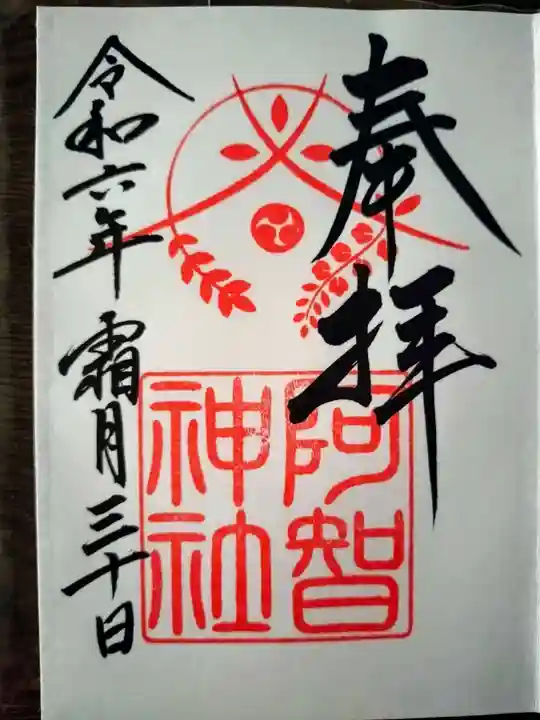 奉拝
阿智
神社
令和六年 霜月 三十日